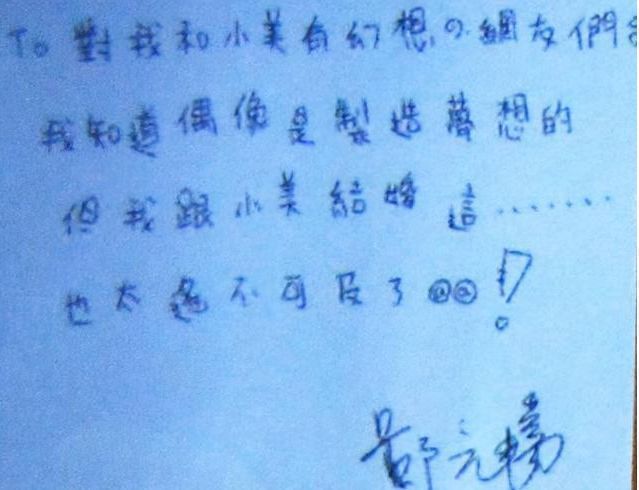 To 對我和小美有幻想の網友們
我知道偶像是製造夢想的
但我跟小美結婚 這.......
也太遙不可及了@@!?